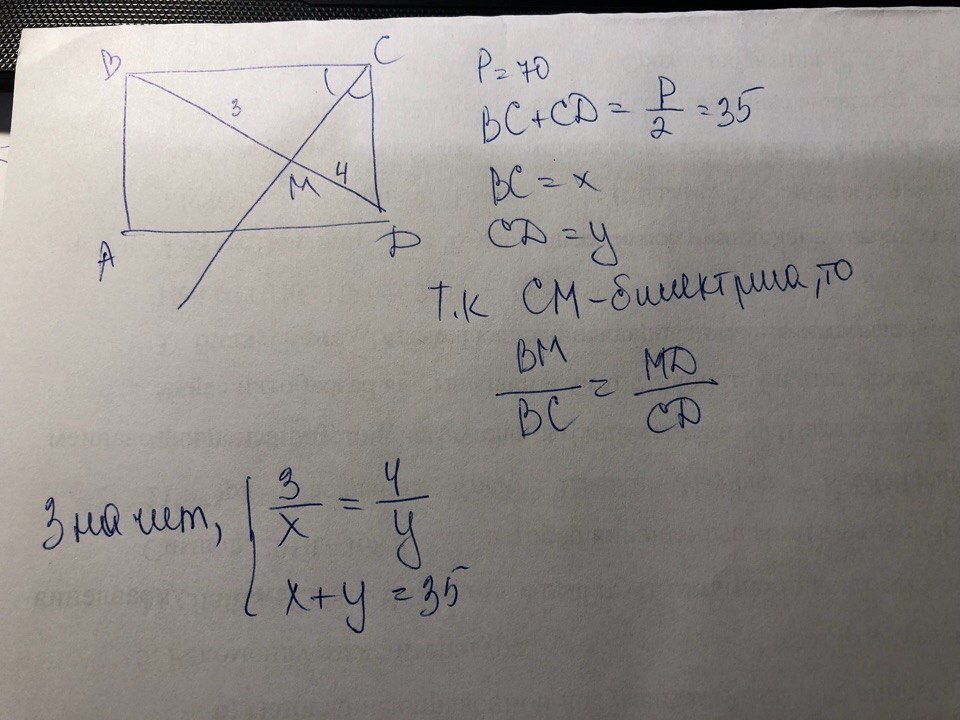 B
C
3
M
4
A
D
P=70
BC+CD = P/2 = 35
BC = x
CD = y
Т.к CM-биссектриса, то
BM/BC = MD/CD
Значит, { 3/x = 4/y
x+y = 35